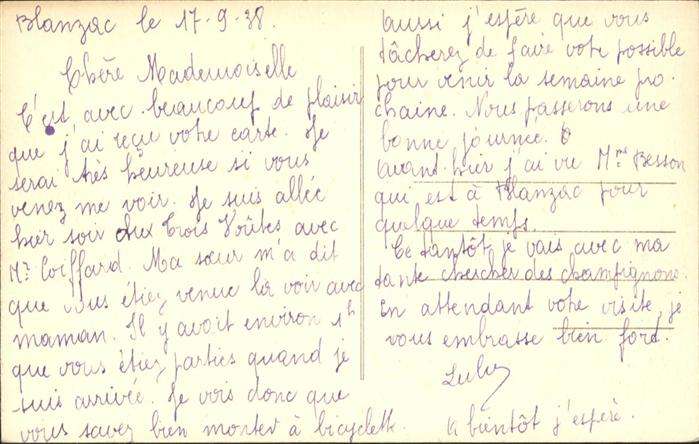 Blanzac le 17-9-38.
Chère Mademoiselle
C'est avec beaucoup de plaisir
que j'ai reçu votre carte. Je
serai très heureuse si vous
venez me voir. Je suis allée
hier soir aux Trois Voûtes avec
Mr Coiffard. Ma sœur m'a dit
que vous étiez venue la voir avec
maman. Il y avait environ 1h
que vous étiez parties quand je
suis arrivée. Je vois donc que
vous savez bien monter à bicyclette.
aussi j'espère que vous
tâcherez de faire votre possible
pour venir la semaine pro-
chaine. Nous passerons une
bonne journée.
avant hier j'ai vu Besson
qui est à Blanzac pour
quelque temps.
Ce tantôt je vais avec ma
tante chercher des champignons.
En attendant votre visite, je
vous embrasse bien fort.
A bientôt j'espère.